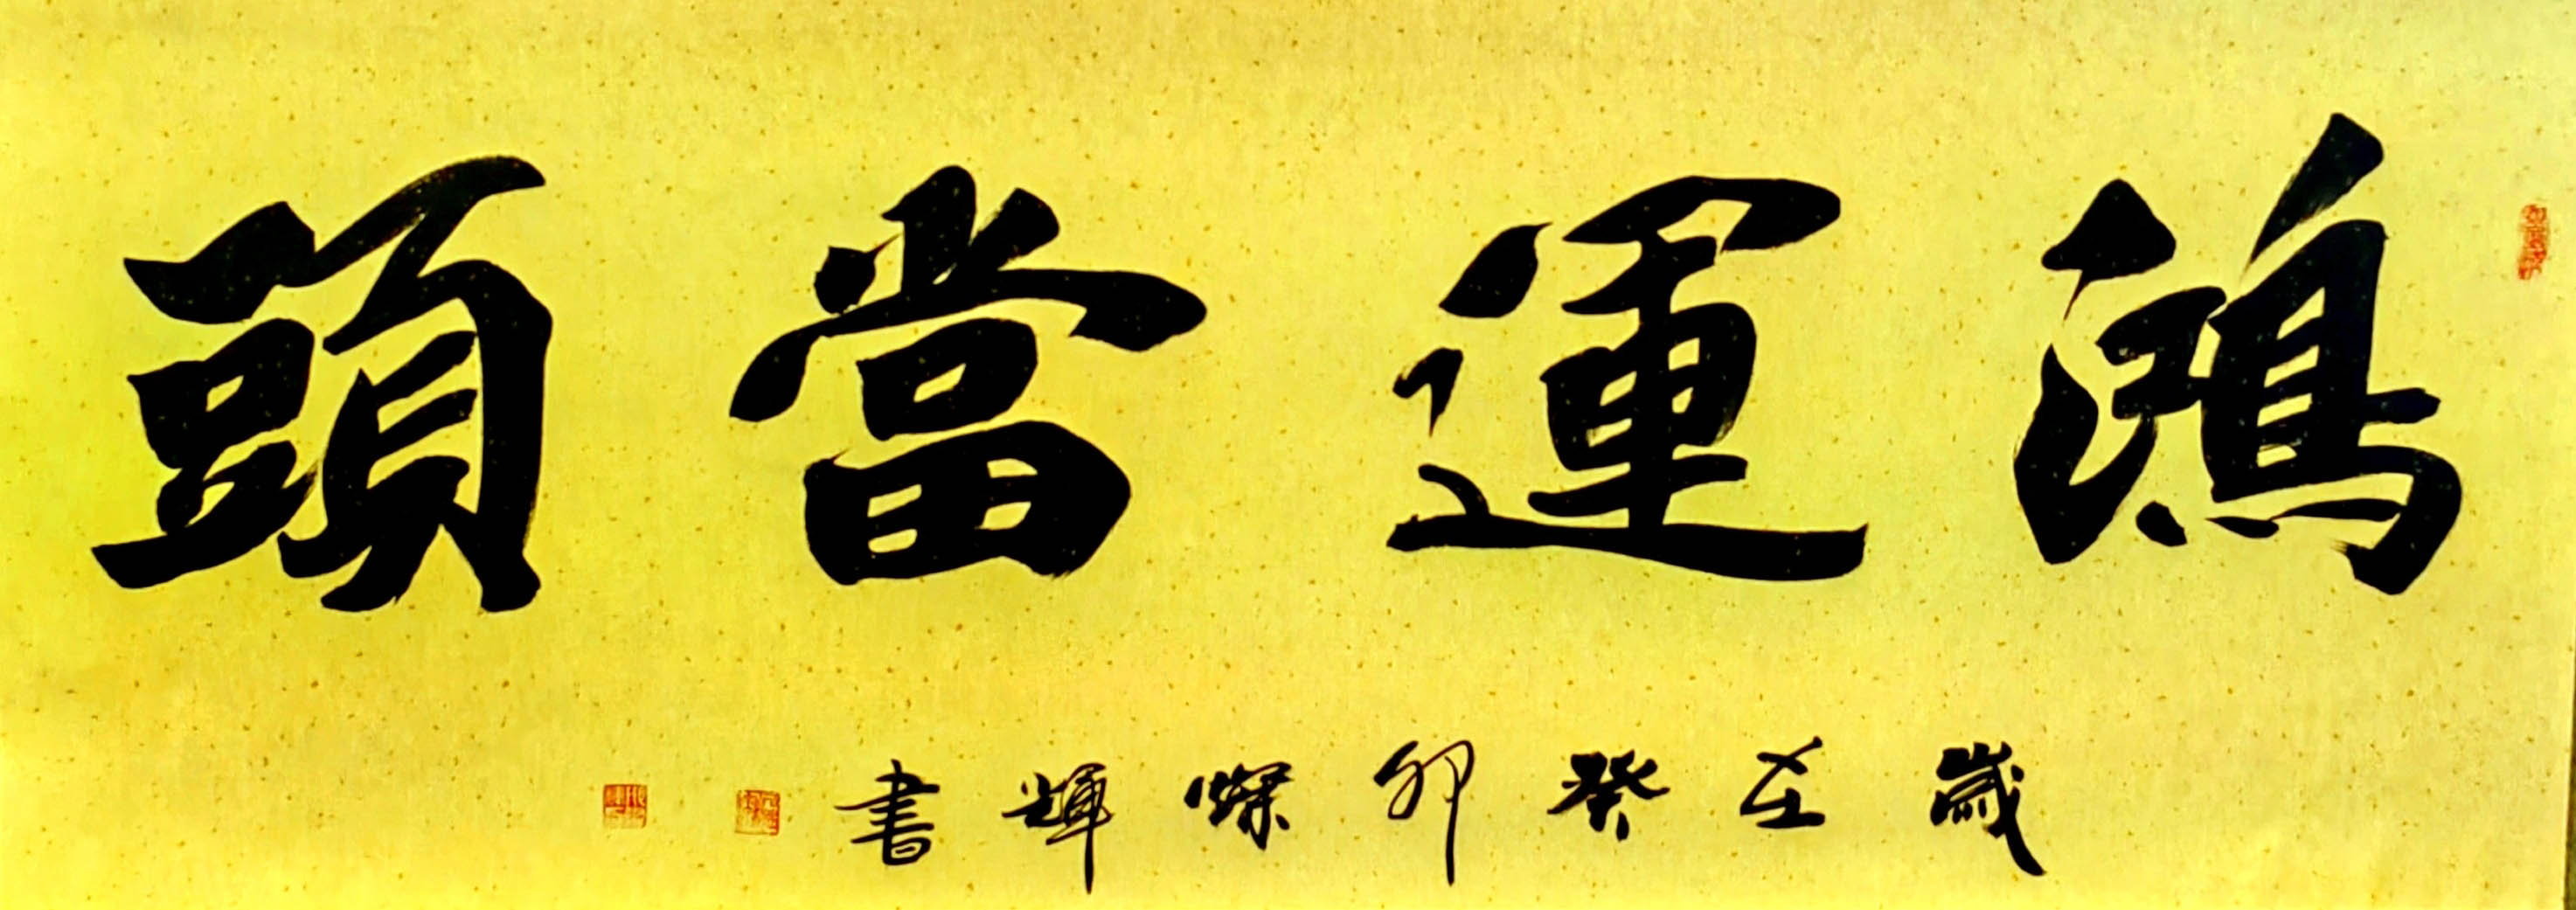 鴻運當頭
歲在癸卯燦輝書